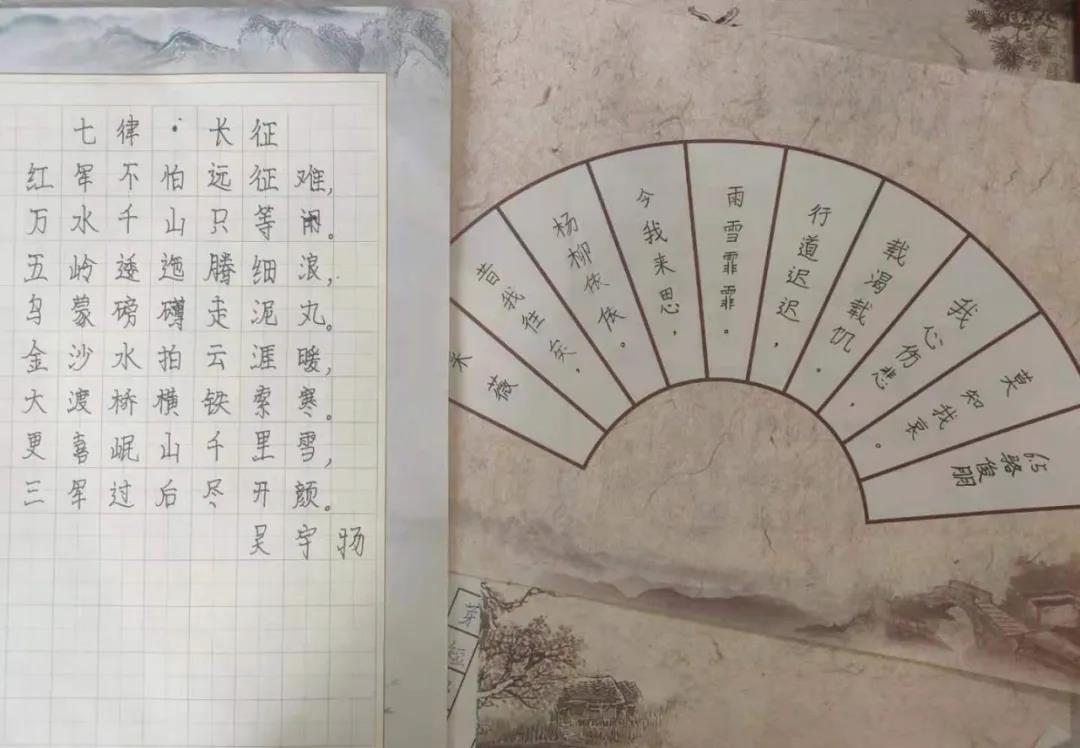 七律·长征
红军不怕远征难，
万水千山只等闲。
五岭逶迤腾细浪，
乌蒙磅礴走泥丸。
金沙水拍云涯暖，
大渡桥横铁索寒。
更喜岷山千里雪，
三军过后尽开颜。
吴宇扬
采薇
昔我往矣，
杨柳依依。
今我来思，
雨雪霏霏。
行道迟迟，
载渴载饥。
我心伤悲，
莫知我哀。
骆俊朋
芽